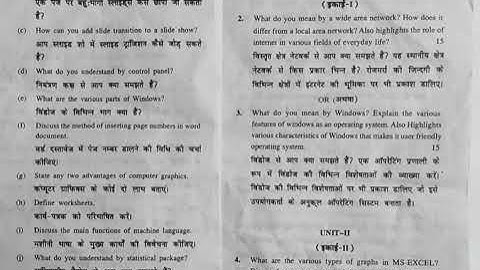 एक पेज पर बहु-भागी स्लाइड्स कैसे छापी जा सकती
हैं?
(c) How can you add slide transition to a slide show?
आप स्लाइड शो में स्लाइड ट्रांजिशन कैसे जोड़ सकते
हैं?
(d) What do you understand by control panel?
नियंत्रण कक्ष से आप क्या समझते हैं?
(e) What are the various parts of Windows?
विंडोज के विभिन्न भाग क्या हैं?
(f) Discuss the method of inserting page numbers in word
document.
वर्ड दस्तावेज में पेज नम्बर डालने की विधि की चर्चा
कीजिए।
(g) State any two advantages of computer graphics.
कंप्यूटर ग्राफिक्स के कोई दो लाभ बताएं।
(h) Define worksheets.
कार्य-पत्रक को परिभाषित करें।
(i) Discuss the main functions of machine language.
मशीनी भाषा के मुख्य कार्यों की विवेचना कीजिए।
(j) What do you understand by statistical package?
(इकाई-I)
2. What do you mean by a wide area network? How does it
differ from a local area network? Also highlights the role of
internet in various fields of everyday life? 15
विस्तृत क्षेत्र नेटवर्क से आप क्या समझते हैं? यह स्थानीय क्षेत्र
नेटवर्क से किस प्रकार भिन्न है? रोजमर्रा की जिन्दगी के
विभिन्न क्षेत्रों में इंटरनेट की भूमिका पर भी प्रकाश डालिए।
OR (अथवा)
3. What do you mean by Windows? Explain the various
features of windows as an operating system. Also Highlights
various characteristics of Windows that makes it user friendly
operating system. 15
विंडोज से आप क्या समझते हैं? एक ऑपरेटिंग प्रणाली के
रूप में विंडोज की विभिन्न विशेषताओं की व्याख्या करें।
विंडोज की विभिन्न विशेषताओं पर भी प्रकाश डालिए जो इसे
उपयोगकर्ता के अनुकूल ऑपरेटिंग सिस्टम बनाता है।
UNIT-II
(इकाई-II)
4. What are the various types of graphs in MS-EXCEL?